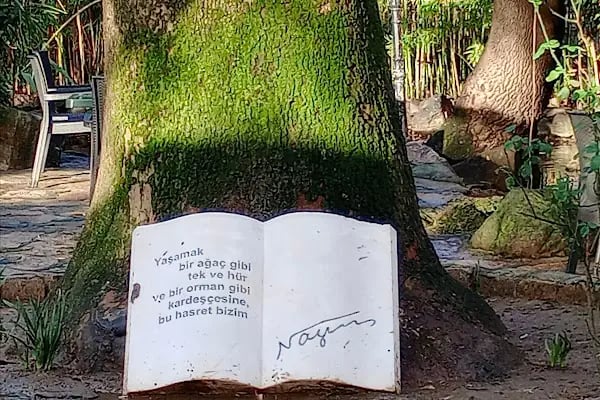 Yaşamak
bir ağaç gibi
tek ve hür
ve bir orman gibi
kardeşçesine,
bu hasret bizim
Nazım